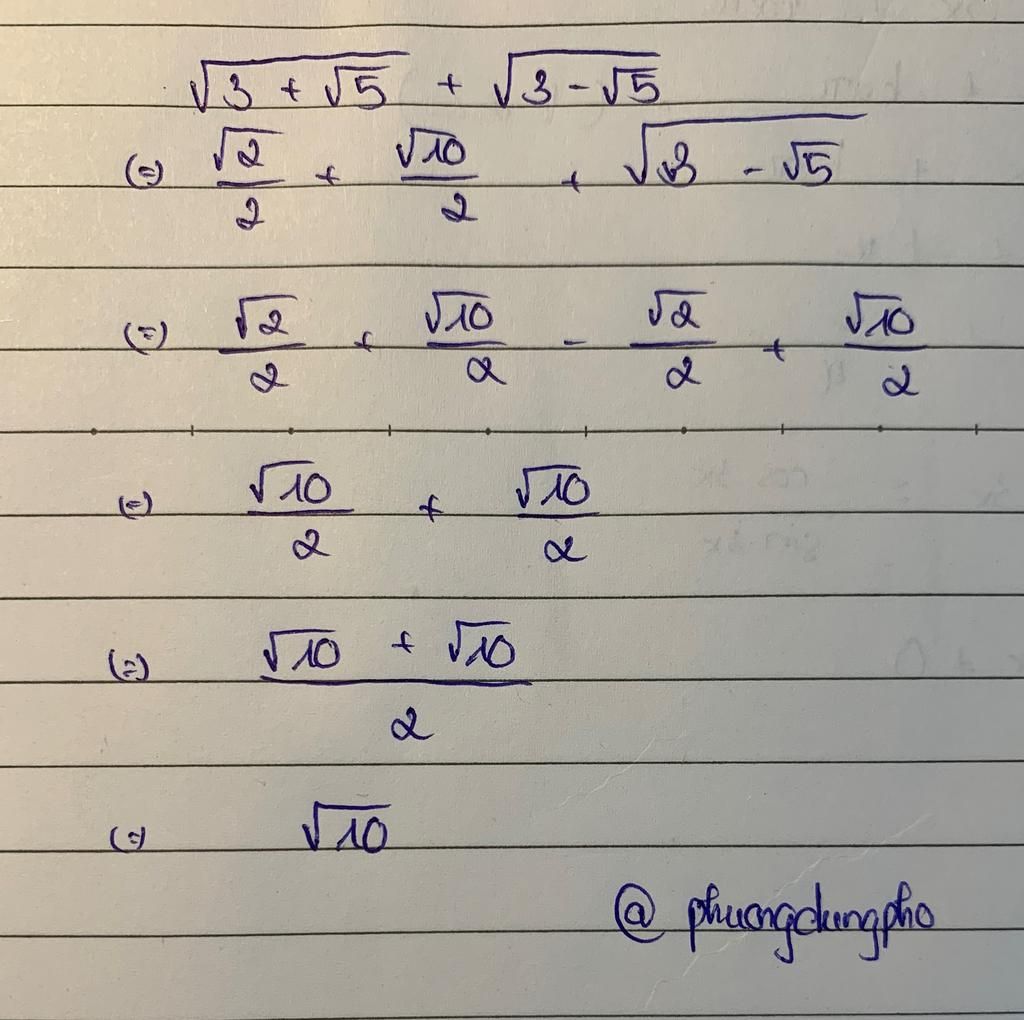 √(3 + √5) + √(3 - √5)
(=) √2/2 + √10/2 + √(3 - √5)
(=) √2/2 + √10/2 - √2/2 + √10/2
(=) √10/2 + √10/2
(=) (√10 + √10)/2
(=) √10
@ phuongdungpho